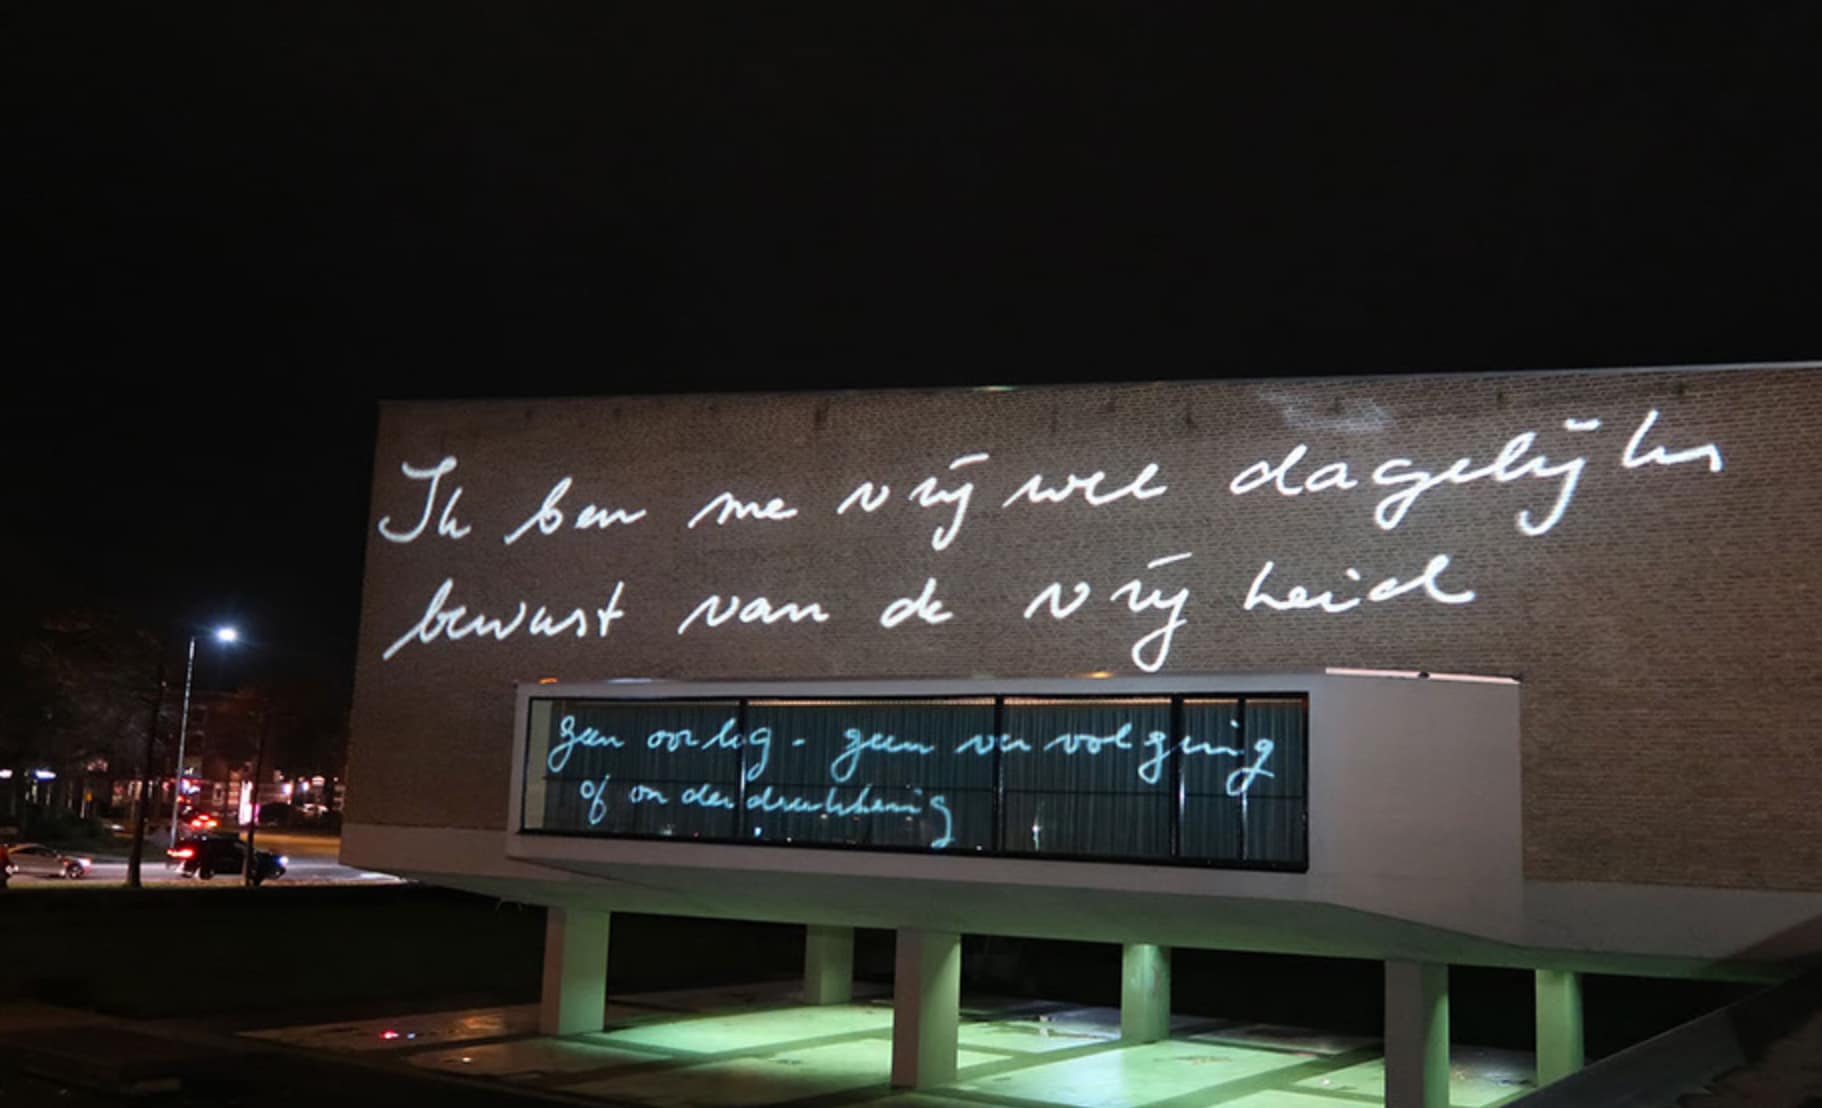 Ik ben me vrijwel dagelijks
bewust van de vrijheid
geen oorlog - geen vervolging
of onderdrukking